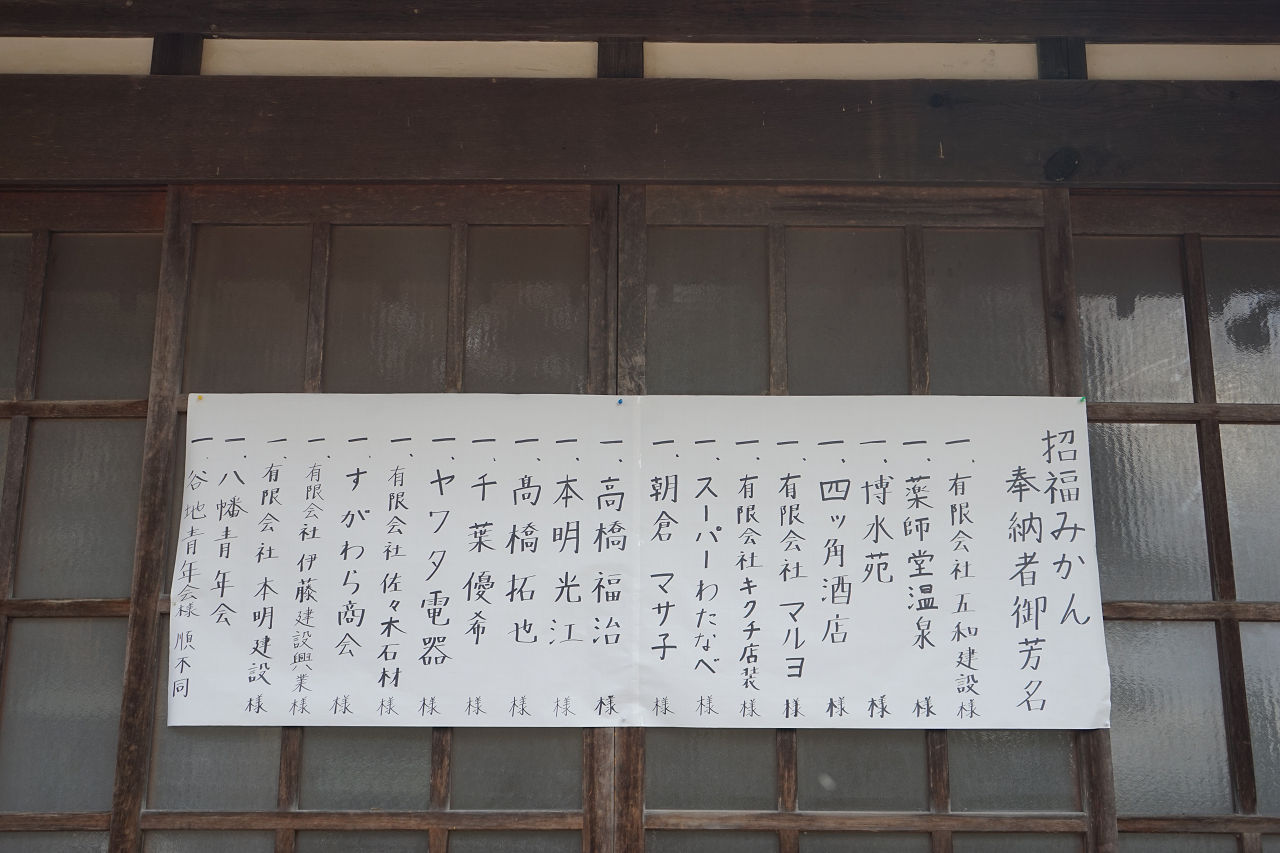 招福みかん
奉納者御芳名
一、有限会社 五和建設様
一、薬師堂温泉様
一、博水苑様
一、四ッ角酒店様
一、有限会社 マルヨ様
一、有限会社キクチ店装様
一、スーパーわたなべ様
一、朝倉 マサ子様
一、高橋 福治様
一、本明光江様
一、髙橋拓也様
一、千葉優希様
一、ヤワタ電器様
一、有限会社 佐々木石材様
一、すがわら商会様
一、有限会社 伊藤建設興業様
一、有限会社 本明建設様
一、八幡青年会
一、谷地青年会様 順不同